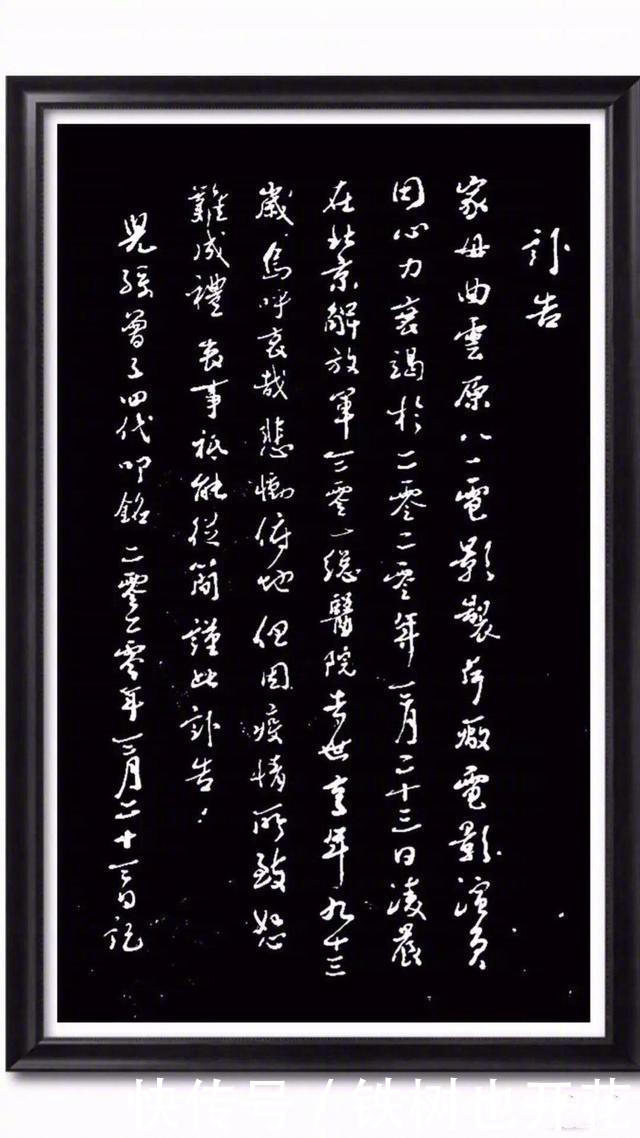 訃告
家母曲雲原八一電影製片廠電影演員
因心力衰竭於二零二零年三月二十三日凌晨
在北京解放軍三零一總醫院去世享年九十三
歲,烏呼哀哉悲慟俯地但因疫情所致恕
難成禮喪事祇能從簡謹此訃告!
兒孫曾子四代叩銘二零二零年三月二十三日記
快传号 / 铁树也开花